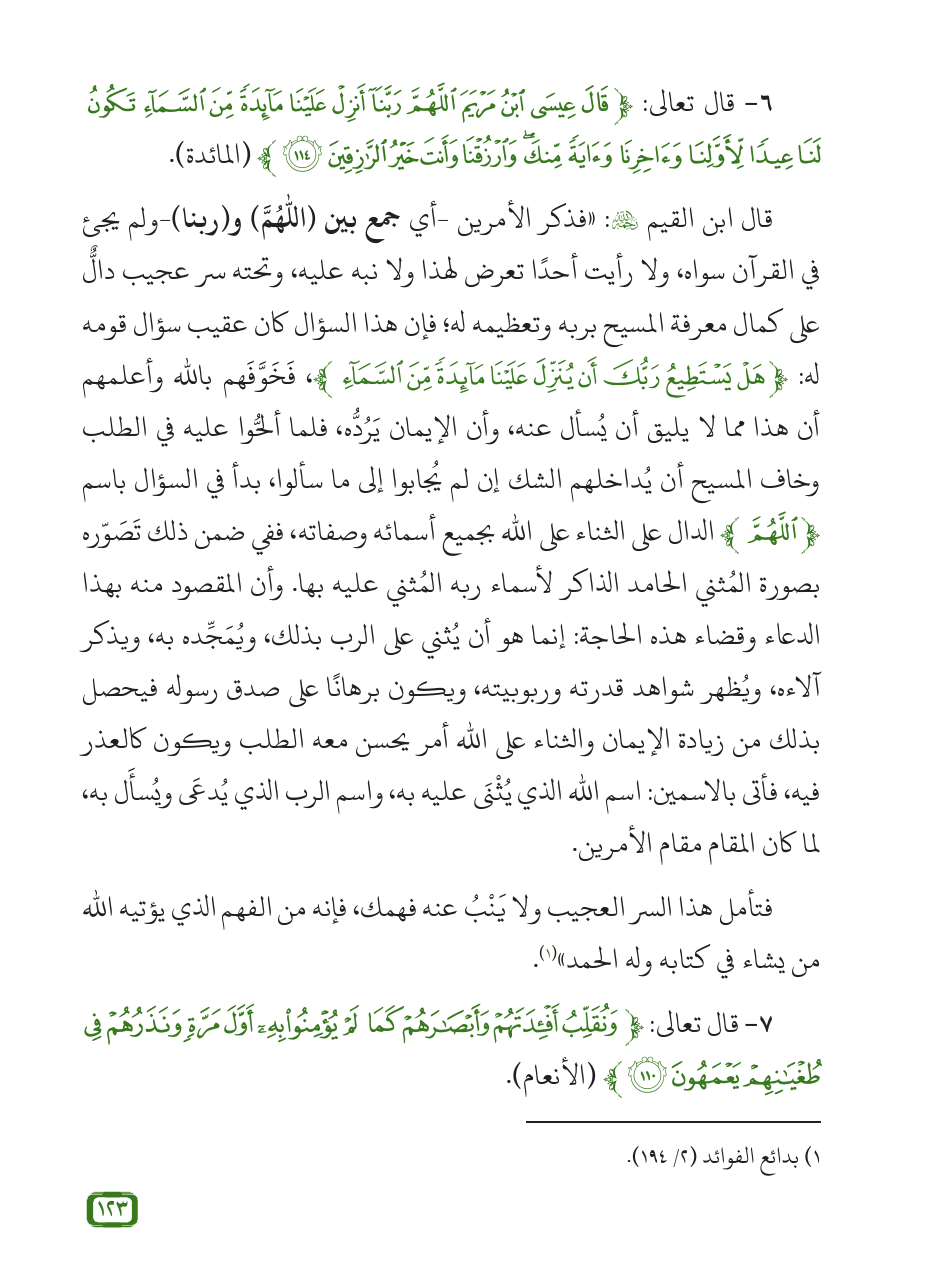 ٦- قال تعالى: ﴿ قَالَ عِيسَى ٱبْنُ مَرْيَمَ ٱللَّهُمَّ رَبَّنَآ أَنزِلْ عَلَيْنَا مَآئِدَةً مِّنَ ٱلسَّمَآءِ تَكُونُ
لَنَا عِيدًا لِّأَوَّلِنَا وَءَاخِرِنَا وَءَايَةً مِّنكَ ۖ وَٱرْزُقْنَا وَأَنتَ خَيْرُ ٱلرَّٰزِقِينَ ١١٤ ﴾ (المائدة).
قال ابن القيم رحمه الله: «فذكر الأمرين -أي جمع بين (اللَّهُمَّ) و(ربنا)-ولم يجئ
في القرآن سواه، ولا رأيت أحدًا تعرض لهذا ولا نبه عليه، وتحته سر عجيب دالٌّ
على كمال معرفة المسيح بربه وتعظيمه له؛ فإن هذا السؤال كان عقيب سؤال قومه
له: ﴿ هَلْ يَسْتَطِيعُ رَبُّكَ أَن يُنَزِّلَ عَلَيْنَا مَآئِدَةً مِّنَ ٱلسَّمَآءِ ﴾، فَخَوَّفَهم بالله وأعلمهم
أن هذا مما لا يليق أن يُسأل عنه، وأن الإيمان يَرُدُّه، فلما ألحُّوا عليه في الطلب
وخاف المسيح أن يُداخلهم الشك إن لم يُجابوا إلى ما سألوا، بدأ في السؤال باسم
﴿ ٱللَّهُمَّ ﴾ الدال على الثناء على الله بجميع أسمائه وصفاته، ففي ضمن ذلك تَصَوّره
بصورة المُثني الحامد الذاكر لأسماء ربه المُثني عليه بها. وأن المقصود منه بهذا
الدعاء وقضاء هذه الحاجة: إنما هو أن يُثني على الرب بذلك، ويُمَجِّده به، ويذكر
آلاءه، ويُظهر شواهد قدرته وربوبيته، ويكون برهانًا على صدق رسوله فيحصل
بذلك من زيادة الإيمان والثناء على الله أمر يحسن معه الطلب ويكون كالعذر
فيه، فأتى بالاسمين: اسم الله الذي يُثْنَى عليه به، واسم الرب الذي يُدعَى ويُسأَل به،
لما كان المقام مقام الأمرين.
فتأمل هذا السر العجيب ولا يَنْبُ عنه فهمك، فإنه من الفهم الذي يؤتيه الله
من يشاء في كتابه وله الحمد»(١).
٧- قال تعالى: ﴿ وَنُقَلِّبُ أَفْـِٔدَتَهُمْ وَأَبْصَٰرَهُمْ كَمَا لَمْ يُؤْمِنُوا۟ بِهِۦٓ أَوَّلَ مَرَّةٍ وَنَذَرُهُمْ فِى
طُغْيَٰنِهِمْ يَعْمَهُونَ ١١٠ ﴾ (الأنعام).
١) بدائع الفوائد (٢/ ١٩٤).
١٢٣